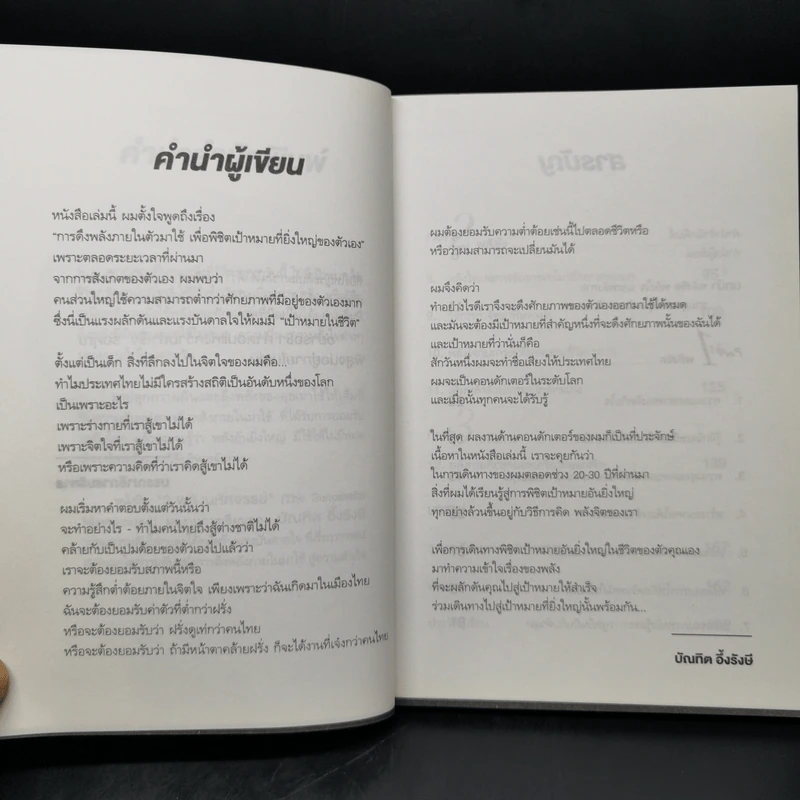 คำนำผู้เขียน
หนังสือเล่มนี้ ผมตั้งใจพูดถึงเรื่อง
"การดึงพลังภายในตัวมาใช้ เพื่อพิชิตเป้าหมายที่ยิ่งใหญ่ของตัวเอง"
เพราะตลอดระยะเวลาที่ผ่านมา
จากการสังเกตของตัวเอง ผมพบว่า
คนส่วนใหญ่ใช้ความสามารถต่ำกว่าศักยภาพที่มีอยู่ของตัวเองมาก
ซึ่งนี่เป็นแรงผลักดันและแรงบันดาลใจให้ผมมี "เป้าหมายในชีวิต"
ตั้งแต่เป็นเด็ก สิ่งที่ลึกลงไปในจิตใจของผมคือ...
ทำไมประเทศไทยไม่มีใครสร้างสถิติเป็นอันดับหนึ่งของโลก
เป็นเพราะอะไร
เพราะร่างกายที่เราสู้เขาไม่ได้
เพราะจิตใจที่เราสู้เขาไม่ได้
หรือเพราะความคิดที่ว่าเราคิดสู้เขาไม่ได้
ผมเริ่มหาคำตอบตั้งแต่วันนั้นว่า
จะทำอย่างไร - ทำไมคนไทยถึงสู้ต่างชาติไม่ได้
คล้ายกับเป็นปมด้อยของตัวเองไปแล้วว่า
เราจะต้องยอมรับสภาพนี้หรือ
ความรู้สึกต่ำต้อยภายในจิตใจ เพียงเพราะว่าฉันเกิดมาในเมืองไทย
ฉันจะต้องยอมรับค่าตัวที่ต่ำกว่าฝรั่ง
หรือจะต้องยอมรับว่า ฝรั่งดูเท่กว่าคนไทย
หรือจะต้องยอมรับว่า ถ้ามีหน้าตาคล้ายฝรั่ง ก็จะได้งานที่เจ๋งกว่าคนไทย
ผมต้องยอมรับความต่ำต้อยเช่นนี้ไปตลอดชีวิตหรือ
หรือว่าผมสามารถจะเปลี่ยนมันได้
ผมจึงคิดว่า
ทำอย่างไรดีเราจึงจะดึงศักยภาพของตัวเองออกมาใช้ได้หมด
และมันจะต้องมีเป้าหมายที่สำคัญหนึ่งที่จะดึงศักยภาพนั้นของฉันได้
และเป้าหมายที่ว่านั่นก็คือ
สักวันหนึ่งผมจะทำชื่อเสียงให้ประเทศไทย
ผมจะเป็นคอนดักเตอร์ในระดับโลก
และเมื่อนั้นทุกคนจะได้รับรู้
ในที่สุด ผลงานด้านคอนดักเตอร์ของผมก็เป็นที่ประจักษ์
เนื้อหาในหนังสือเล่มนี้ เราจะคุยกันว่า
ในการเดินทางของผมตลอดช่วง 20-30 ปีที่ผ่านมา
สิ่งที่ผมได้เรียนรู้สู่การพิชิตเป้าหมายอันยิ่งใหญ่
ทุกอย่างล้วนขึ้นอยู่กับวิธีการคิด พลังจิตของเรา
เพื่อการเดินทางพิชิตเป้าหมายอันยิ่งใหญ่ในชีวิตของตัวคุณเอง
มาทำความเข้าใจเรื่องของพลัง
ที่จะผลักดันคุณไปสู่เป้าหมายให้สำเร็จ
ร่วมเดินทางไปสู่เป้าหมายที่ยิ่งใหญ่นั้นพร้อมกัน...
บัณฑิต อึ้งรังษี